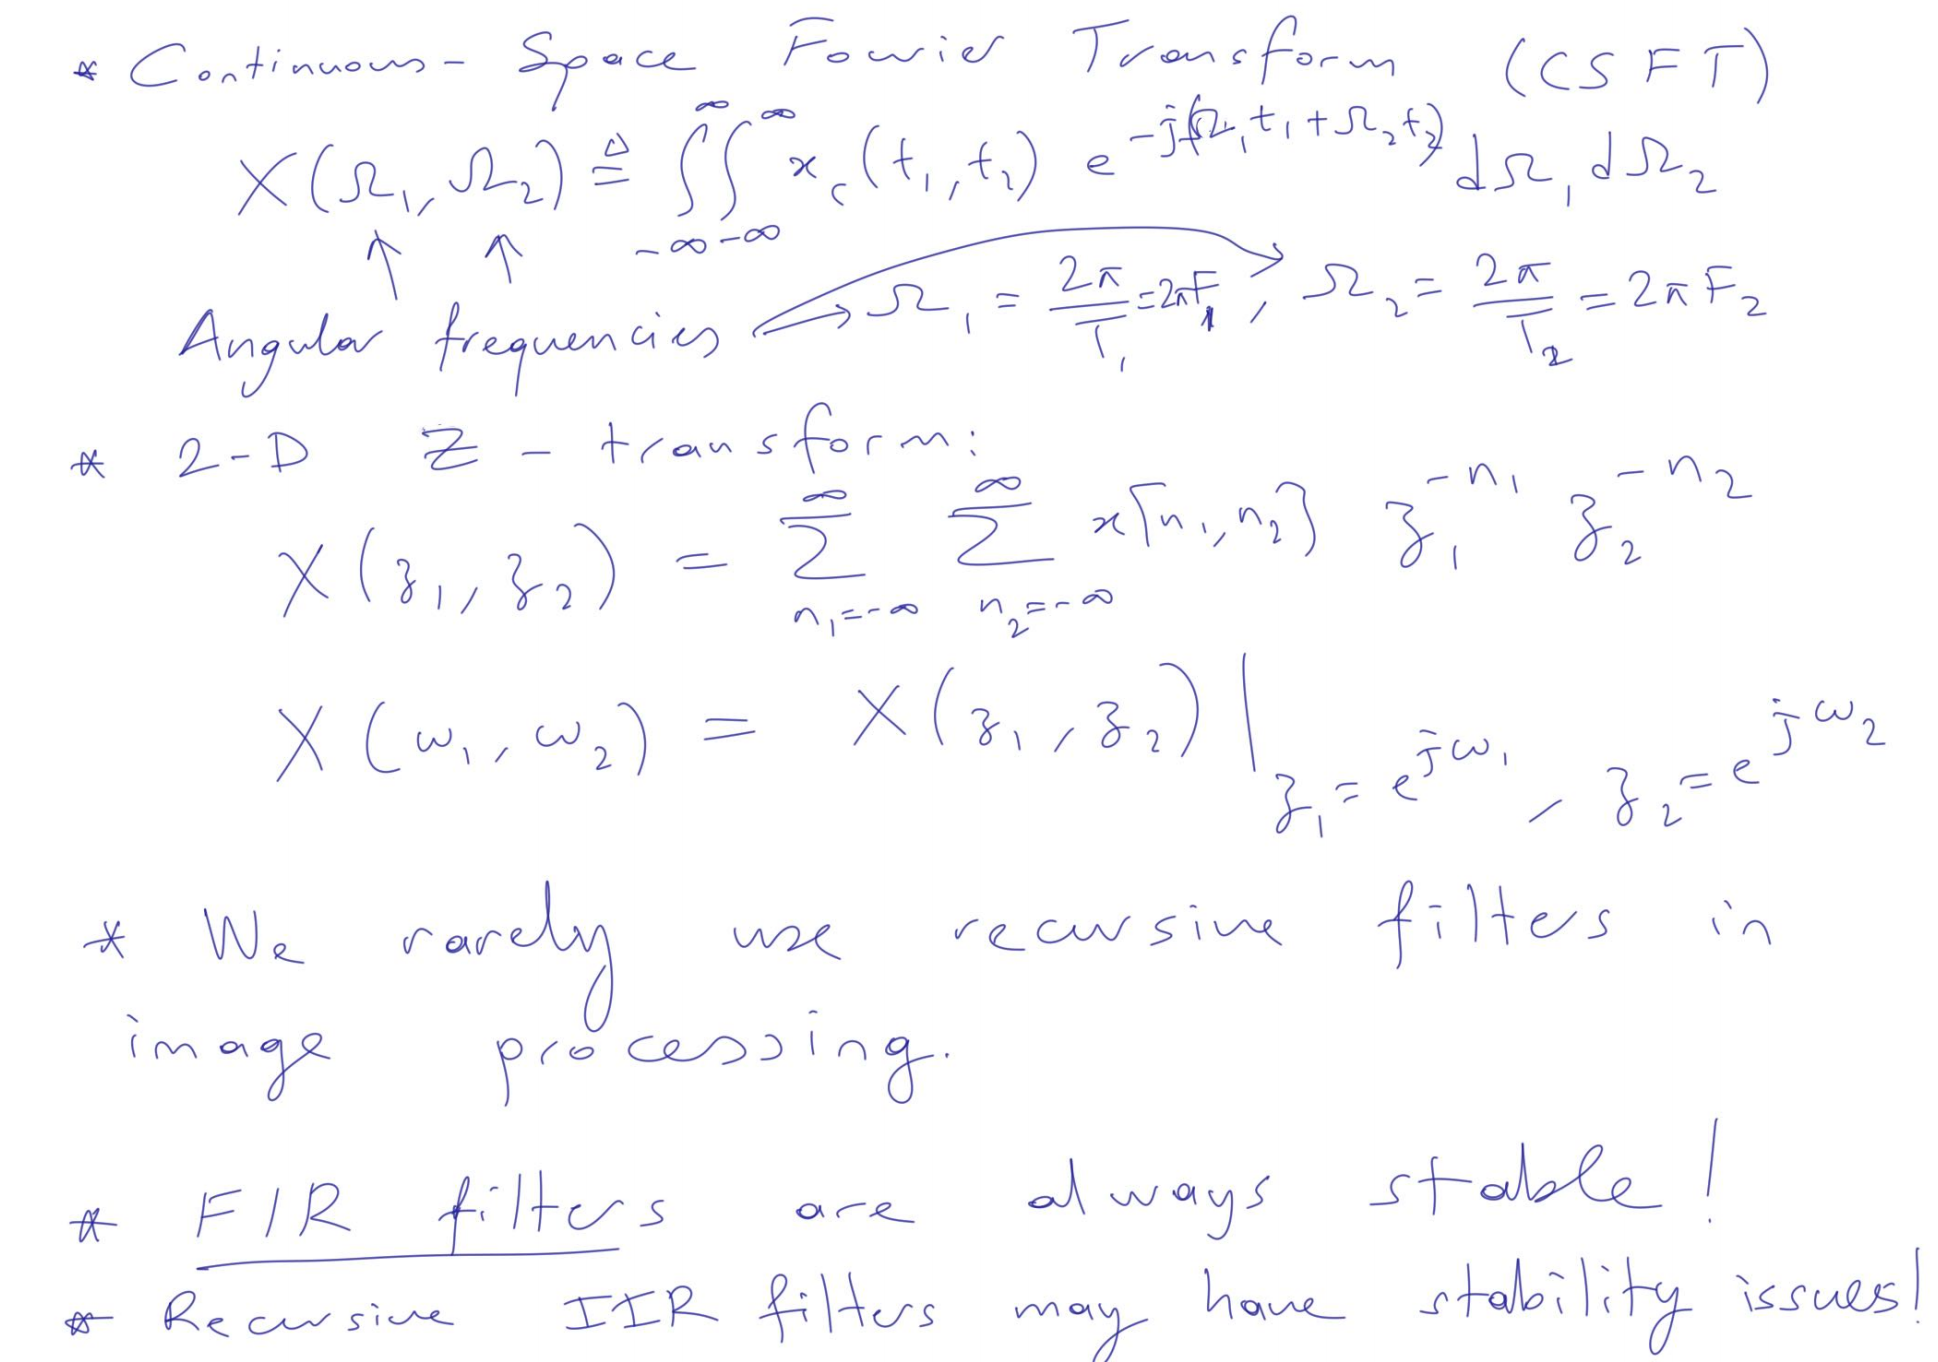 * Continuous-Space Fourier Transform (CSFT)
X(Ω₁, Ω₂) ≜ ∫_{-∞}^{∞} ∫_{-∞}^{∞} x_c(t₁, t₂) e^{-j(Ω₁t₁+Ω₂t₂)} dΩ₁ dΩ₂
↑ ↑
Angular frequencies → Ω₁ = 2π/T₁ = 2πF₁, Ω₂ = 2π/T₂ = 2πF₂
* 2-D Z-transform:
X(z₁, z₂) = ∑_{n₁=-∞}^{∞} ∑_{n₂=-∞}^{∞} x[n₁, n₂] z₁^{-n₁} z₂^{-n₂}
X(ω₁, ω₂) = X(z₁, z₂) |_{z₁=e^{jω₁}, z₂=e^{jω₂}}
* We rarely use recursive filters in
image processing.
* FIR filters are always stable!
* Recursive IIR filters may have stability issues!